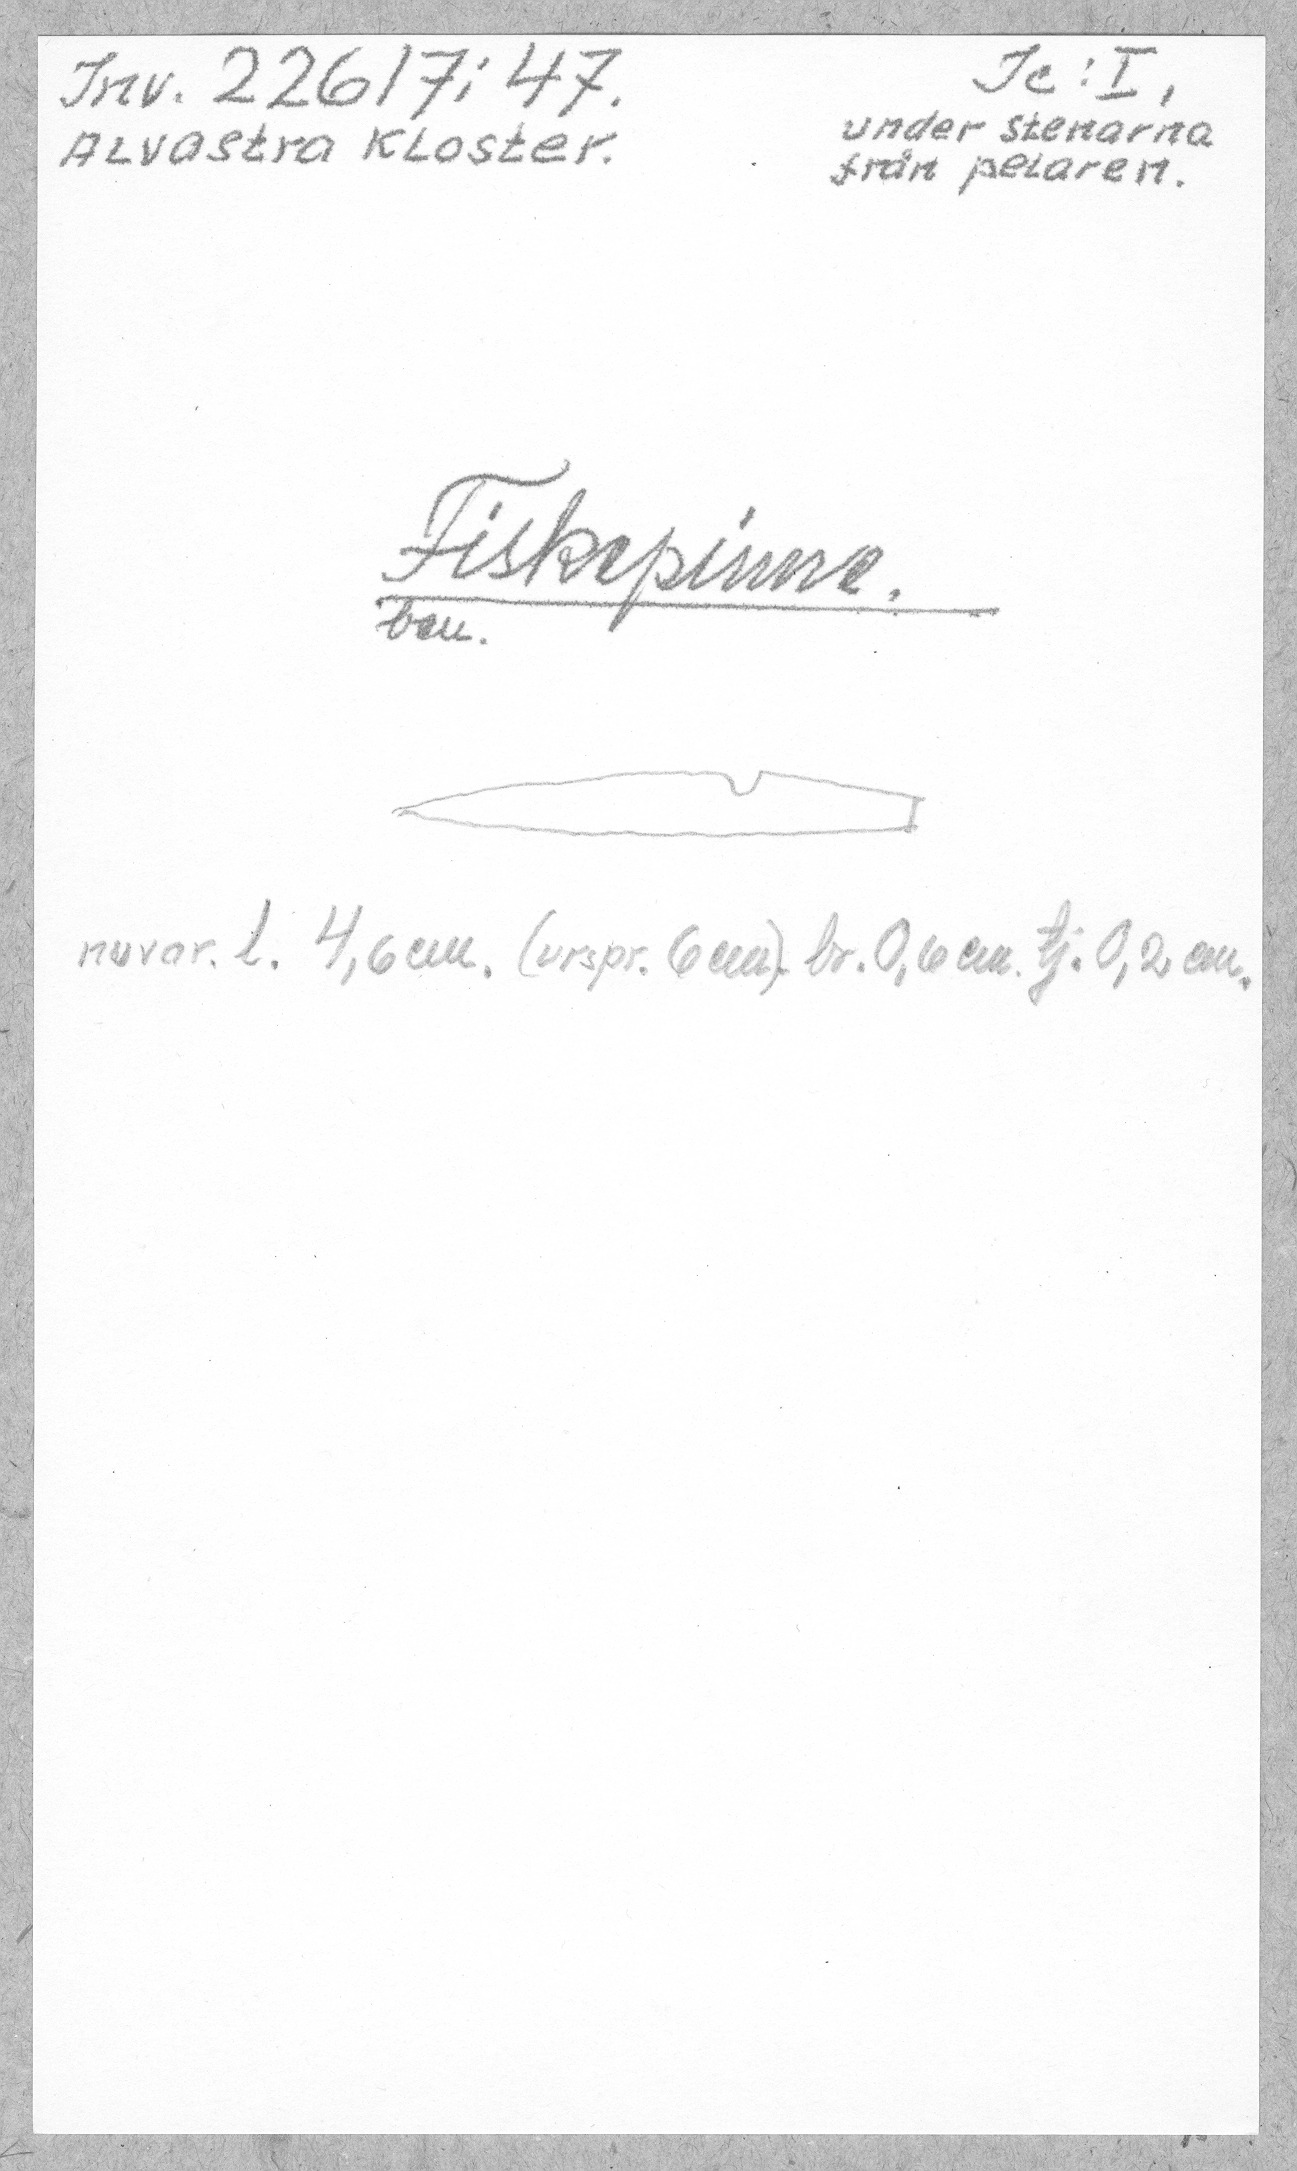 Inv. 22617; 47.
Alvastra Kloster.
Jc: I,
under stenarna
från pelaren.
Fiskepinne.
ben.
nuvar. l. 4,6 cm. (urspr. 6 cm). br. 0,6 cm. tj. 0,2 cm.